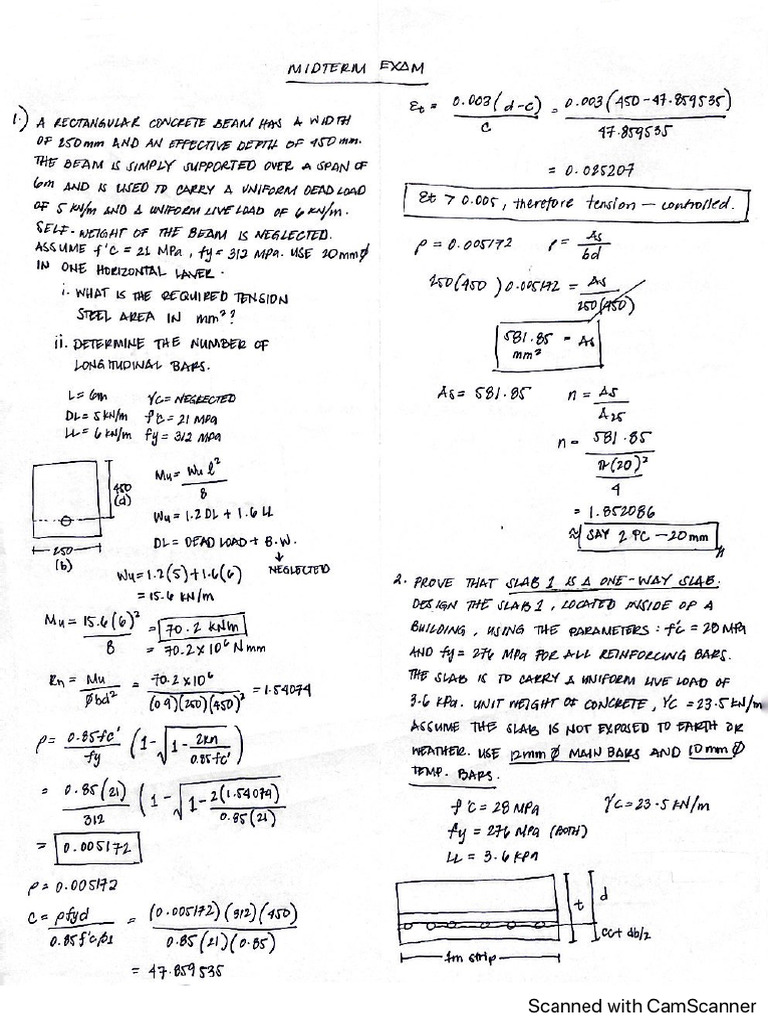 MIDTERM EXAM
1.) A RECTANGULAR CONCRETE BEAM HAS A WIDTH
OF 250mm AND AN EFFECTIVE DEPTH OF 450 mm.
THE BEAM IS SIMPLY SUPPORTED OVER A SPAN OF
6m AND IS USED TO CARRY A UNIFORM DEAD LOAD
OF 5 KN/m AND A UNIFORM LIVE LOAD OF 6 KN/m.
SELF-WEIGHT OF THE BEAM IS NEGLECTED.
ASSUME f'C = 21 MPa, fy = 312 MPa. USE 20mmØ
IN ONE HORIZONTAL LAYER.
i. WHAT IS THE REQUIRED TENSION
STEEL AREA IN mm²?
ii. DETERMINE THE NUMBER OF
LONGITUDINAL BARS.
L = 6m γC = NEGLECTED
DL = 5 KN/m f'C = 21 MPa
LL = 6 KN/m fy = 312 MPa
450
(d)
250
(b)
Mu = Wu l² / 8
Wu = 1.2 DL + 1.6 LL
DL = DEAD LOAD + B.W.
↓
NEGLECTED
Wu = 1.2(5) + 1.6(6)
= 15.6 KN/m
Mu = 15.6(6)² / 8 = 70.2 KNm
= 70.2 x 10⁶ N mm
Rn = Mu / Øbd² = 70.2 x 10⁶ / (0.9)(250)(450)² = 1.54079
ρ = 0.85fc' / fy (1 - √1 - 2Rn / 0.85fc')
= 0.85(21) / 312 (1 - √1 - 2(1.54079) / 0.85(21)
= 0.005172
ρ = 0.005172
C = ρfyd / 0.85f'cβ1 = (0.005172)(312)(450) / 0.85(21)(0.85)
= 47.859535
Et = 0.003(d-c) / c = 0.003(450-47.859535) / 47.859535
= 0.025207
Et > 0.005, therefore tension - controlled.
ρ = 0.005172 ρ = As / bd
250(450) 0.005172 = As / 250(450)
581.85 mm² = As
As = 581.85 n = As / A25
n = 581.85 / π(20)² / 4
= 1.852086
≈ SAY 2 PC - 20mm
2. PROVE THAT SLAB 1 IS A ONE-WAY SLAB.
DESIGN THE SLAB 1, LOCATED INSIDE OF A
BUILDING, USING THE PARAMETERS: f'c = 28 MPa
AND fy = 276 MPa FOR ALL REINFORCING BARS.
THE SLAB IS TO CARRY A UNIFORM LIVE LOAD OF
3.6 kPa. UNIT WEIGHT OF CONCRETE, γC = 23.5 KN/m
ASSUME THE SLAB IS NOT EXPOSED TO EARTH OR
WEATHER. USE 12mm Ø MAIN BARS AND 10mm Ø
TEMP. BARS.
f'C = 28 MPa γC = 23.5 KN/m
fy = 276 MPa (BOTH)
LL = 3.6 KPa
t
d
CC + db/2
1m strip
Scanned with CamScanner